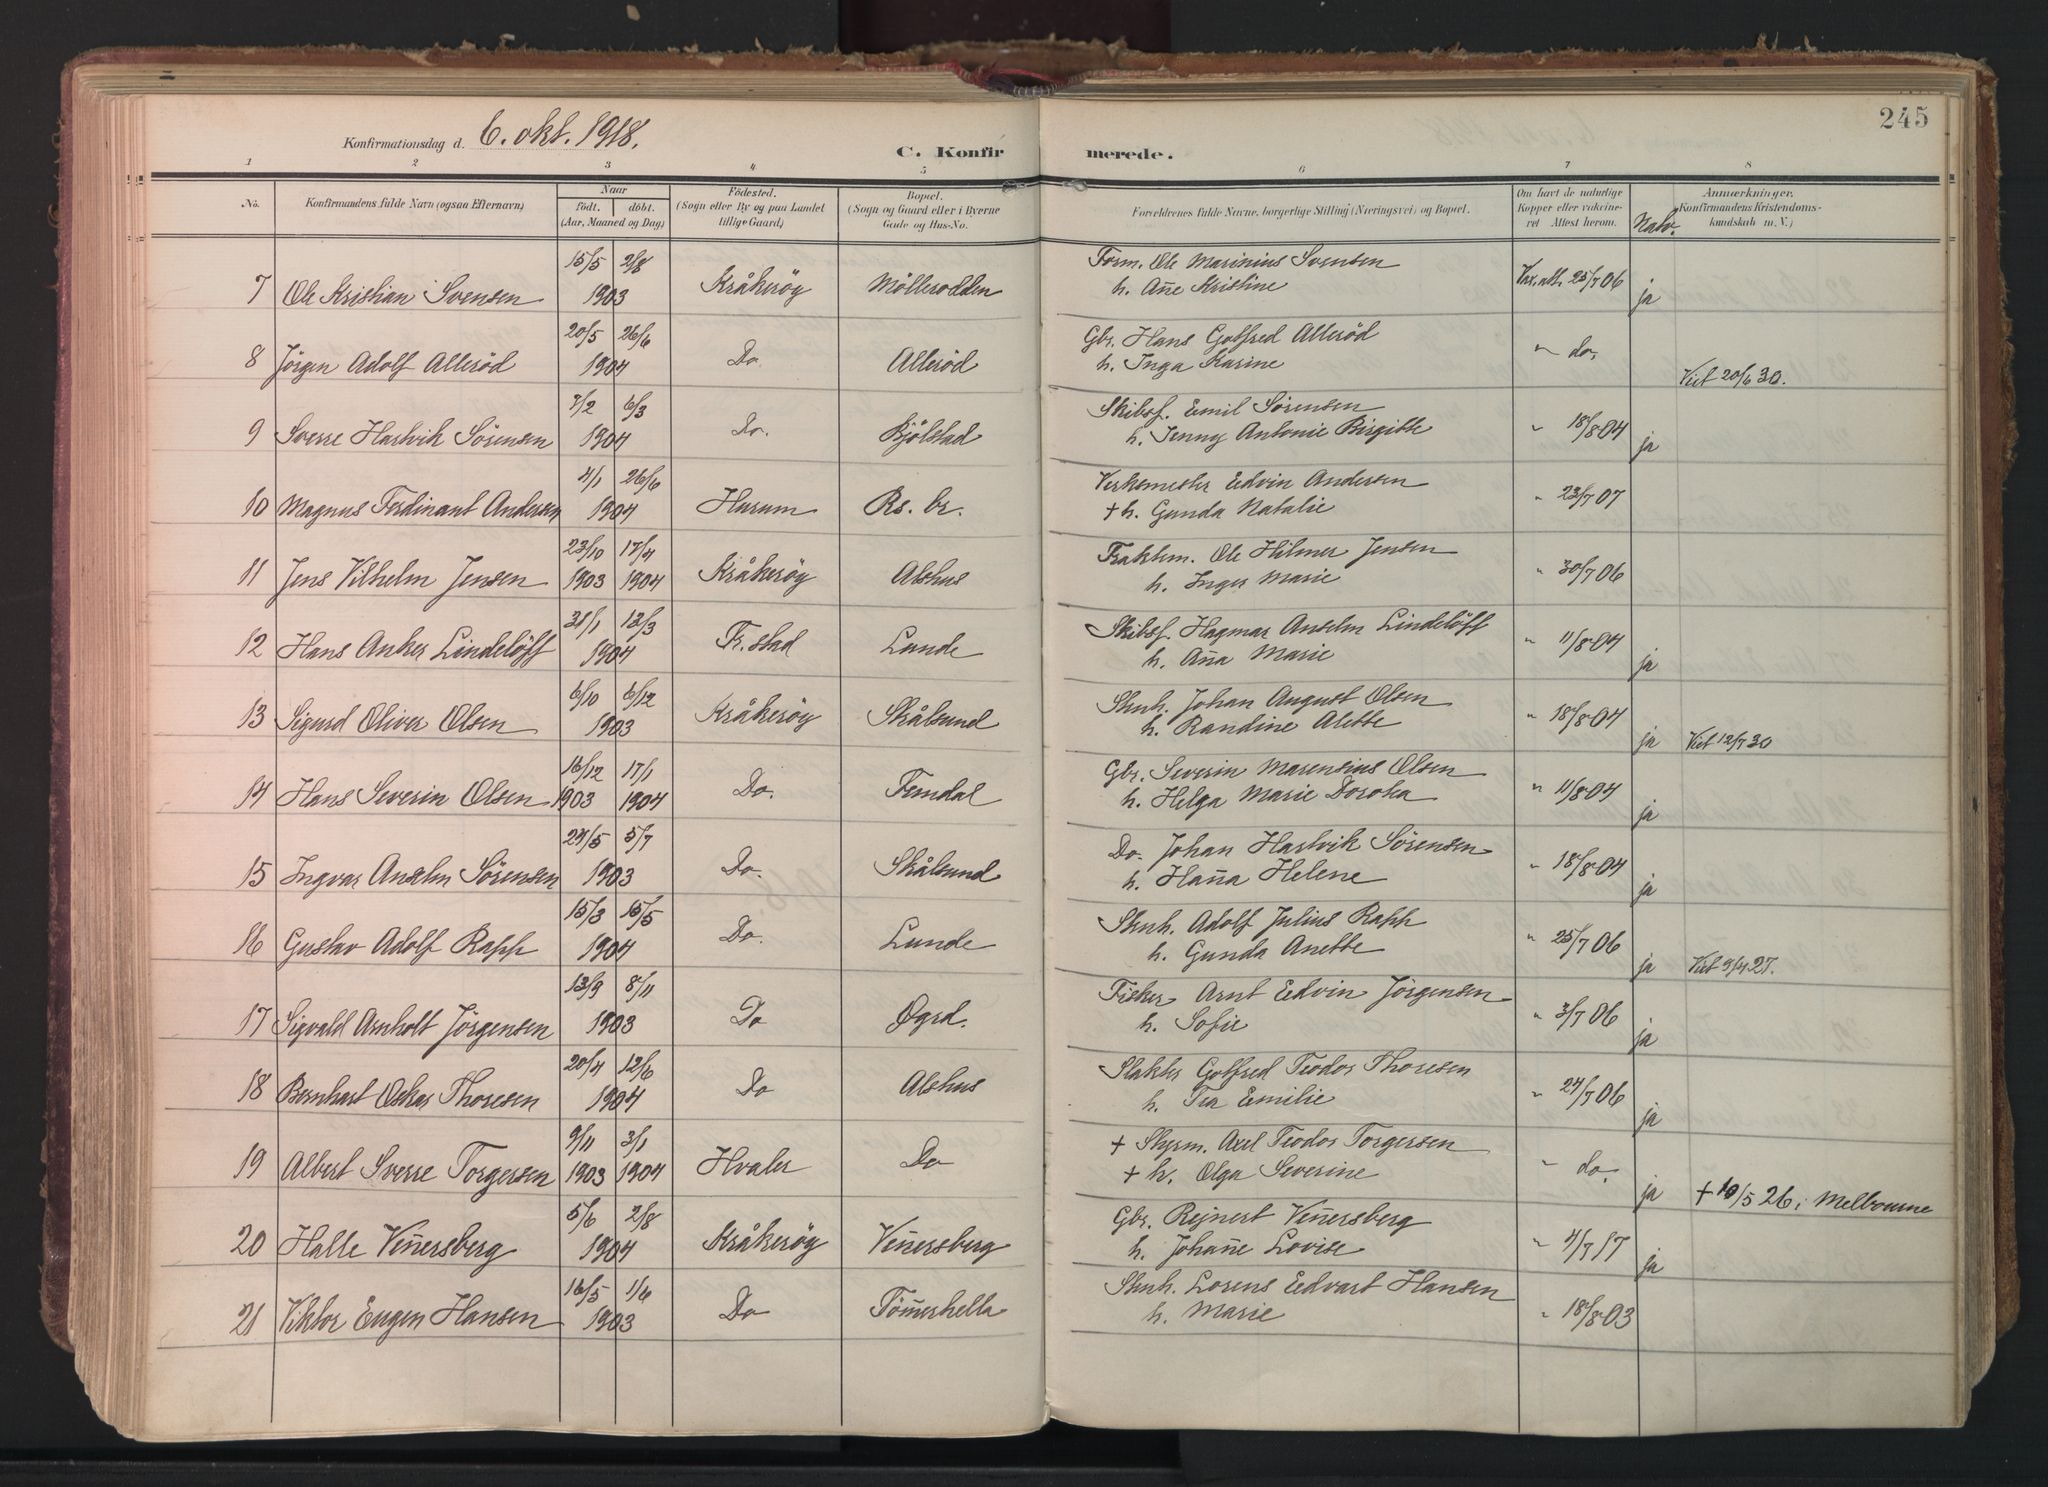 245
Konfirmationsdag d. 6. okt. 1918.
C. Konfirmerede.
1 2 3 4 5 6 7 8
No. Konfirmandens fulde Navn (ogsaa Efternavn) Naar født. døbt. (Aar, Maaned og Dag) Fødested. (Sogn eller By og paa Landet tillige Gaard) Bopæl. (Sogn og Gaard eller i Byerne Gade og Hus-No. Forældrenes fulde Navne, borgerlige Stilling (Næringsvei) og Bopæl. Om havt de naturlige Kopper eller vakcineret Attest herom. Natv. Anmærkninger. (Konfirmandens Kristendomskundskab m. V.)
15/5 2/8 Form. Ole Marinius Svensen
7 Ole Kristian Svensen 1903 Kråkerøy Møllerodden h. Añe Kristine Vax.att. 25/7 06 ja
20/5 26/6 Gbr. Hans Golfred Allerød
8 Jørgen Adolf Allerød 1904 Do. Allerød h. Inga Karine " do. Viet 20/6 30.
7/2 6/3 Skibsf. Emil Sørensen
9 Sverre Hartvik Sørensen 1904 Do. Kjølstad h. Jenny Antonie Birgitte " 18/8 04 ja
4/1 26/6 Verkemester Edvin Andersen
10 Magnus Ferdinant Andersen 1904 Hurum Rs. br. + h. Gunda Natalie " 23/7 07
23/10 17/4 Fraktem. Ole Hilmer Jensen
11 Jens Vilhelm Jensen 1903 1904 Kråkerøy Alshus h. Inger Marie " 30/7 06
31/1 13/3 Skibsf. Hagmar Anselm Lindeløff
12 Hans Anker Lindeløff 1904 Fr.stad Lunde h. Aña Marie " 11/8 04 ja
6/10 6/12 Stenh. Johan August Olsen
13 Sigurd Oliver Olsen 1903 Kråkerøy Skålsund h. Randine Alette " 18/8 04 ja Viet 12/7 30
16/12 17/1 Gbr. Severin Marensius Olsen
14 Hans Severin Olsen 1903 1904 Do. Femdal h. Helga Marie Dorotea " 11/8 04 ja
24/5 5/7 Do. Johan Hartvik Sørensen
15 Ingvar Anselm Sørensen 1903 Do. Skålsund h. Haña Helene " 18/8 04 ja
15/3 15/5 Stenh. Adolf Julius Rapp
16 Gustav Adolf Rapp 1904 Do. Lunde h. Gunda Anette " 25/7 06 ja Viet 9/4 27.
13/9 8/11 Fisker Arnt Edvin Jørgensen
17 Sigvald Arnholt Jørgensen 1903 Do Øgrd. h. Sofie " 3/7 06 ja
20/4 12/6 Slakter Golfred Teodor Thoresen
18 Bernhart Oskar Thoresen 1904 Do Alshus h. Tea Emilie " 24/7 06 ja
9/11 3/1 + Styrm. Axel Teodor Torgersen
19 Albert Sverre Torgersen 1903 1904 Hvaler Do + h. Olga Severine " do. ja + 10/5 26 i Melbourne
5/6 2/8 Gbr. Rejnert Veñersberg
20 Halle Veñersberg 1904 Kråkerøy Veñersberg h. Johañe Lovise " 4/7 17 ja
16/5 1/6 Stenh. Lorens Edvart Hansen
21 Viktor Eugen Hansen 1903 Do Tøm̃erhella h. Marie " 18/8 03